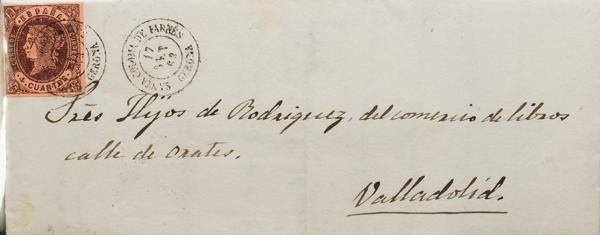 ESPAÑA
CORREOS
4 CUARTOS
SANTA COLOMA DE FARNÉS
17
SET
62
GERONA
GERONA
Sres Hijos de Rodriguez, del comercio de libros
calle de Orates.
Valladolid.